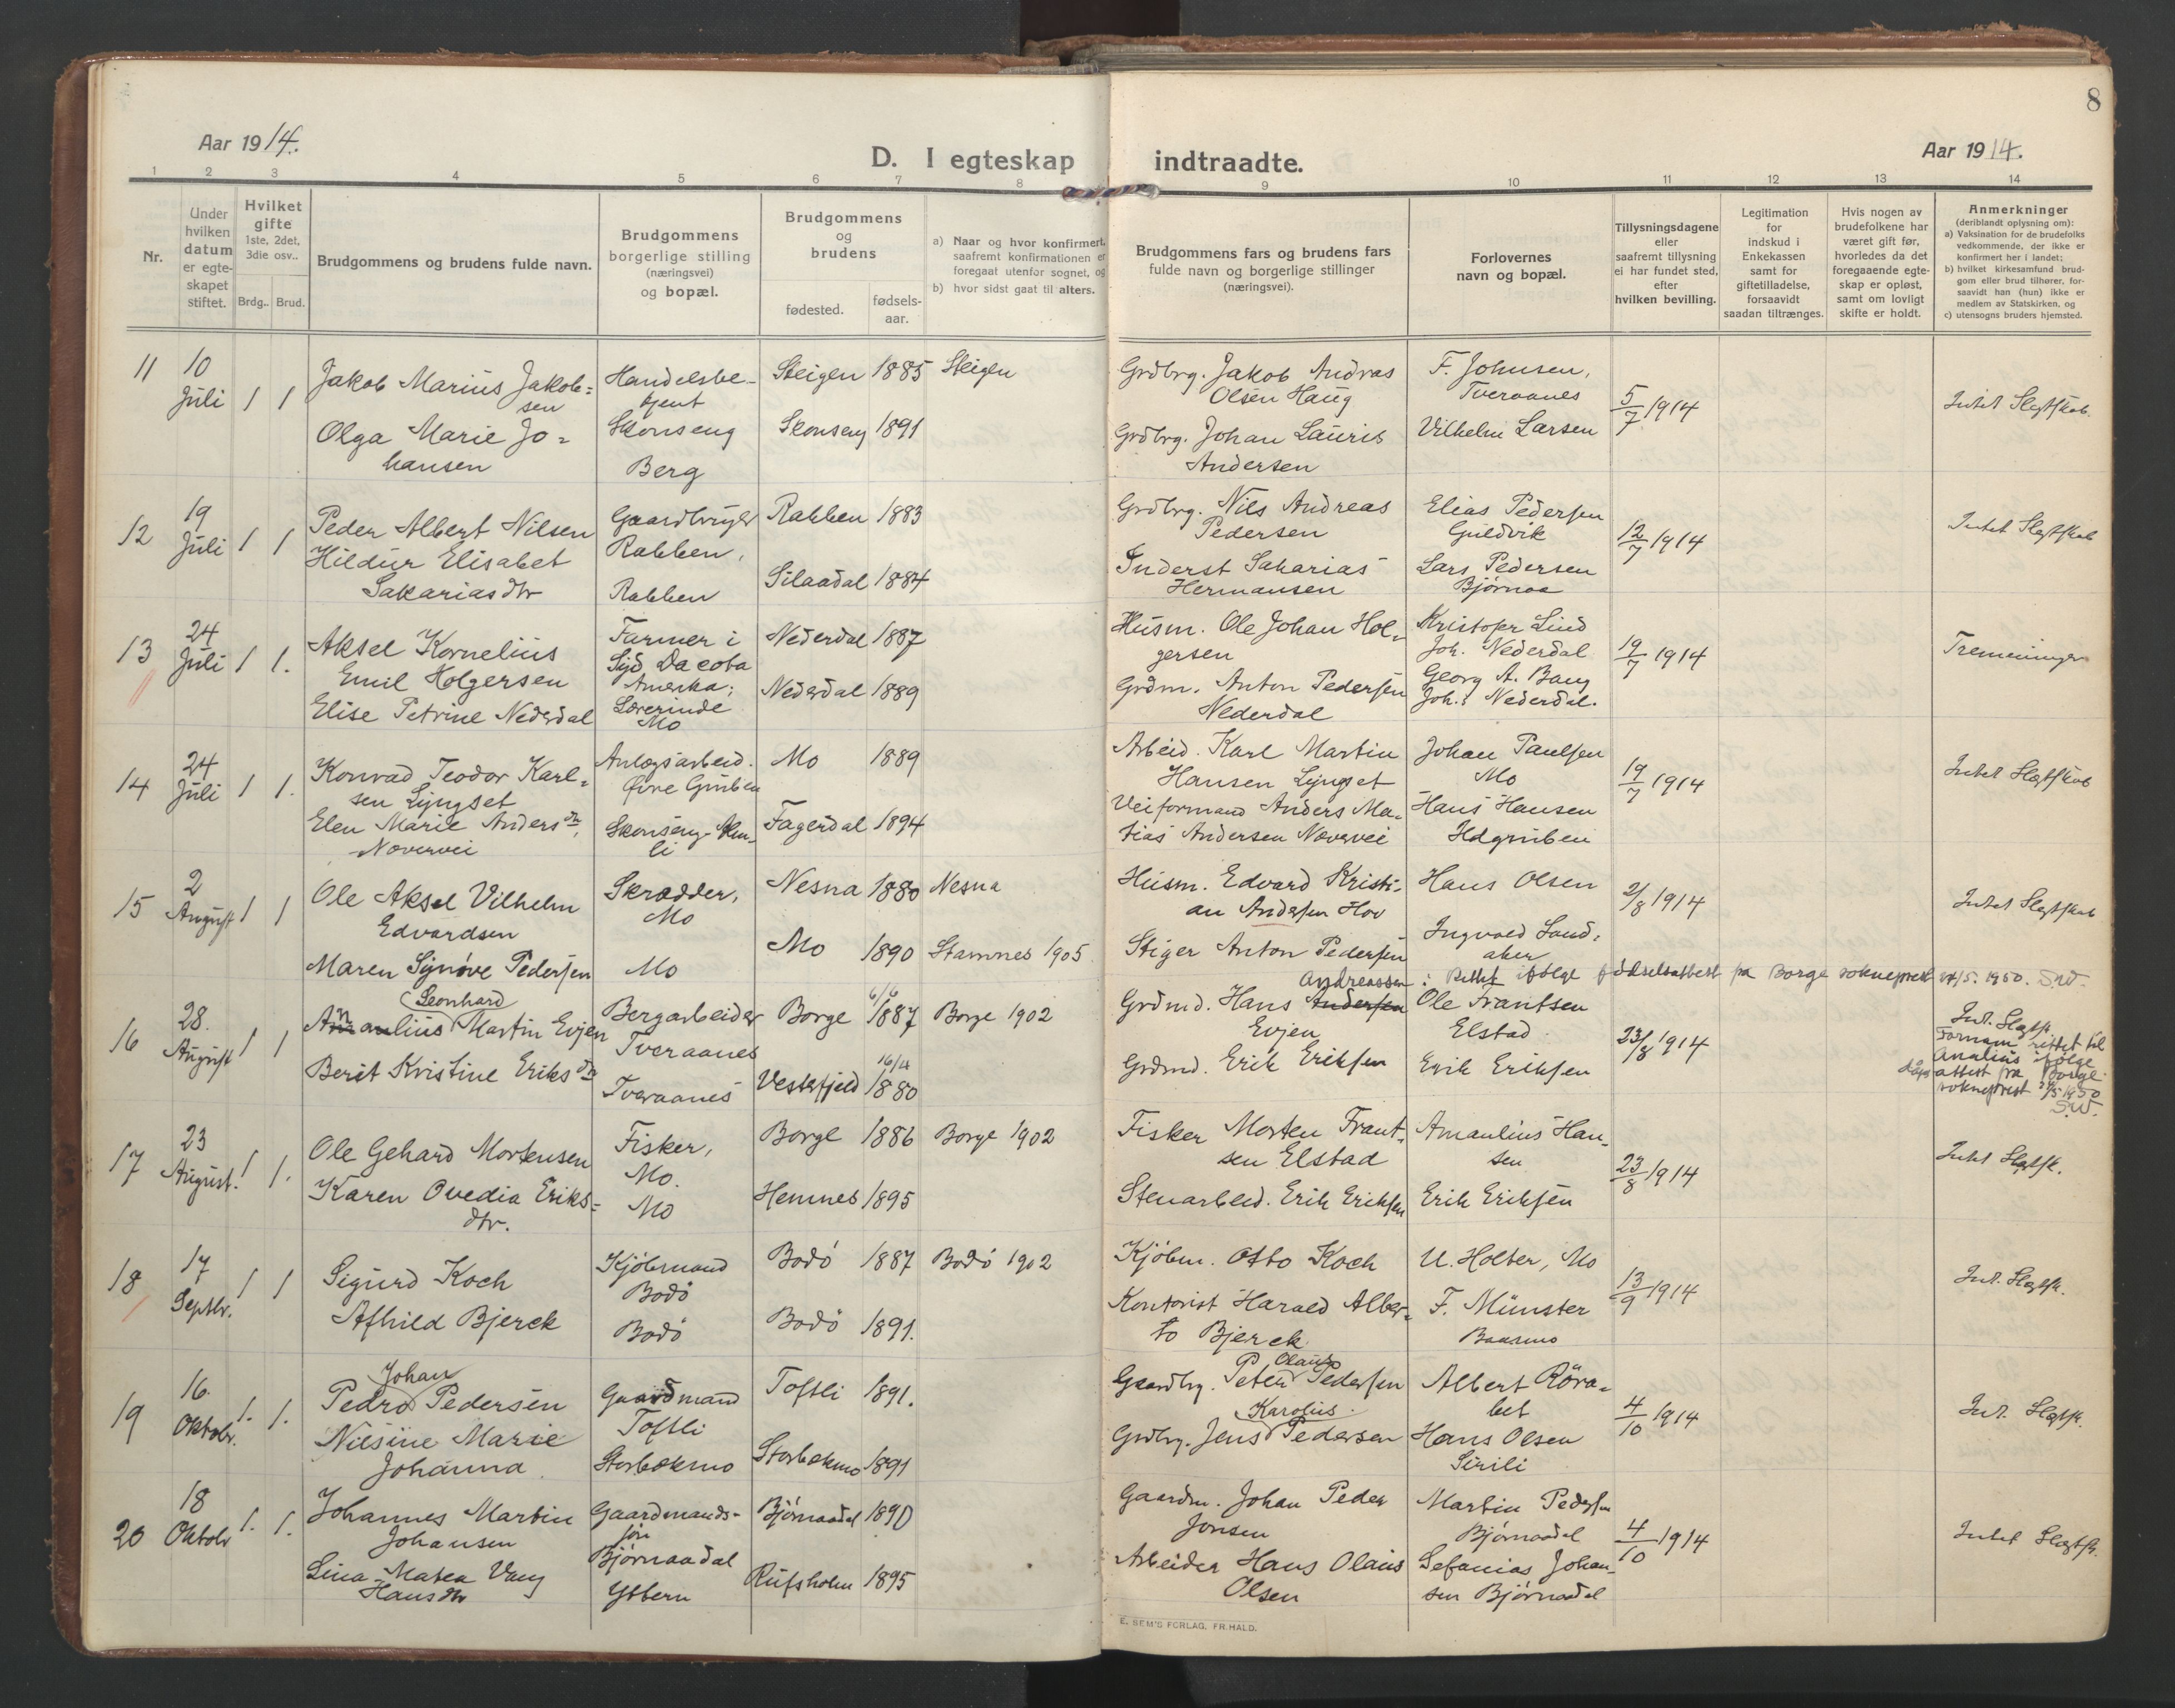 8
Aar 1914.
D. I egteskap indtraadte.
Aar 1914.
1 2 3 4 5 6 7 8 9 10 11 12 13 14
Nr.
Under hvilken datum er egte-skapet stiftet.
Hvilket gifte 1ste, 2det, 3die osv..
Brdg.. Brud.
Brudgommens og brudens fulde navn.
Brudgommens borgerlige stilling (næringsvei) og bopæl.
Brudgommens og brudens
fødested. fødsels-aar.
a) Naar og hvor konfirmert, saafremt konfirmationen er foregaat utenfor sognet, og
b) hvor sidst gaat til alters.
Brudgommens fars og brudens fars fulde navn og borgerlige stillinger (næringsvei).
Forlovernes navn og bopæl.
Tillysningsdagene eller saafremt tillysning ei har fundet sted, efter hvilken bevilling.
Legitimation for indskud i Enkekassen samt for giftetilladelse, forsaavidt saadan tiltrænges.
Hvis nogen av brudefolkene har været gift før, hvorledes da det foregaaende egte-skap er opløst, samt om lovligt skifte er holdt.
Anmerkninger
(deriblandt oplysning om):
a) Vaksination for de brudefolks vedkommende, der ikke er konfirmert her i landet;
b) hvilket kirkesamfund brud-gom eller brud tilhører, for-saavidt han (hun) ikke er medlem av Statskirken, og
c) utensogns bruders hjemsted.
11 10 Juli 1 1
Jakob Marius Jakob=
sen
Olga Marie Jo=
hansen
Handelsbe-
tjent
Skonseng
Berg
Steigen 1885 Steigen
Skonseng 1891
Grdbrg. Jakob Andras
Olsen Haug
Grdbrg. Johan Lauris
Andersen
F. Johnsen,
Tveraanes
Vilhelm Larsen
5/7 1914
Intet Slegtskab.
12 19 Juli 1 1
Peder Albert Nilsen
Hildur Elisabet
Sakariasdtr
Gaardbruger
Rabben,
Rabben
Rabben 1883
Silaadal 1884
Grdbrg. Nils Andreas
Pedersen
Inderst Sakarias
Hermansen
Elias Pedersen
Guldvik
Lars Pedersen
Bjørnaa
12/7 1914
Intet Slegtskab
13 24 Juli 1 1.
Aksel Kornelius
Emil Holgersen
Elise Petrine Nederdal
Farmer i
Syd Dacota
Amerika;
Lærerinde
Mo
Nederdal 1887
Nederdal 1889
Husm. Ole Johan Hol-
gersen
Grdm. Anton Pedersen
Nederdal
Kristofer Lind
Joh. Nederdal
Georg A. Bang
Joh. Nederdal.
19/7 1914
Tremeninger
14 24 Juli 1 1.
Konrad Teodor Karl=
sen Lyngset
Elen Marie Andersdtr,
Nævervei
Anlegsarbeid.
Øvre Gruben
Skonseng-Alm-
li
Mo 1889
Fagerdal 1894
Arbeid. Karl Martin
Hansen Lyngset
Veiformand Anders Ma-
tias Andersen Nævervei
Johan Paulsen
Mo
Hans Hansen
Hdgruben
19/7 1914
Intet Slegtskab
15 2 August 1 1
Ole Aksel Vilhelm
Edvardsen
Maren Synøve Pedersen
Skrædder,
Mo
Mo
Nesna 1880 Nesna
Mo 1890 Stamnes 1905
Husm. Edvard Kristi-
an Andersen Hov
Stiger Anton Pedersen
Hans Olsen
Ingvald Sand-
aker
2/8 1914
Intet Slegtskab
Andreassen : Rettet ifølge fødselsattest fra Borge sokneprest 24/5. 1950. S.W.
16 28. August 1 1
Leonhard
Amanlius Martin Evjen
Berit Kristine Eriksdtr
Bergarbeider
Tveraanes
Tveraanes
Borge 6/6 1887 Borge 1902
Vestefjeld 16/4 1880
Grdmd. Hans Andersen
Evjen
Grdmd. Erik Eriksen
Ole Frantsen
Elstad
Erik Eriksen
23/8 1914
Int. Slegtsk.
Fornavn rettet til
Analius ifølge
dåpsattest fra Borge
sokneprest 24/5 1950
S.W.
17 23 August. 1 1.
Ole Gehard Mortensen
Karen Ovedia Eriks=
dtr.
Fisker,
Mo.
Mo
Borge 1886 Borge 1902
Hemnes 1895
Fisker Morten Frant-
sen Elstad
Stenarbeid. Erik Eriksen
Amaulius Han-
sen
Erik Eriksen
23/8 1914
Intet Slegtsk.
18 17 Septbr. 1 1
Sigurd Koch
Alfhild Bjerck
Kjøbmand
Bodø
Bodø
Bodø 1887 Bodø 1902
Bodø 1891.
Kjøbm. Otto Koch
Kontorist Harald Alber-
to Bjerck
U. Holter, Mo
F. Münster
Baasmo
13/9 1914
Int. Slegtsk.
19 16. Oktobr. 1. 1.
Johan
Pedro Pedersen
Nilsine Marie
Johanna
Gaardmand
Toftli
Storbækmo
Toftli 1891.
Storbækmo 1891
Olaus
Gaardbrg. Peter Pedersen
Karolius.
Grdbrg. Jens Pedersen
Albert Røva=
let
Hans Olsen
Sirili
4/10 1914
Int. Slegtsk.
20 18 Oktobr 1. 1.
Johannes Martin
Johansen
Lina Matea Vang
Hansdtr
Gaardmands-
søn
Bjørnaadal
Ytbern
Bjørnaadal 1890
Rufsholm 1895
Gaardm. Johan Peder
Jonsen
Arbeider Hans Olaus
Olsen
Martin Pedersen
Bjørnaadal
Sefanias Johan-
sen Bjørnaadal
4/10 1914
Intet Slegtsk.
E. SEM'S FORLAG, FR.HALD.